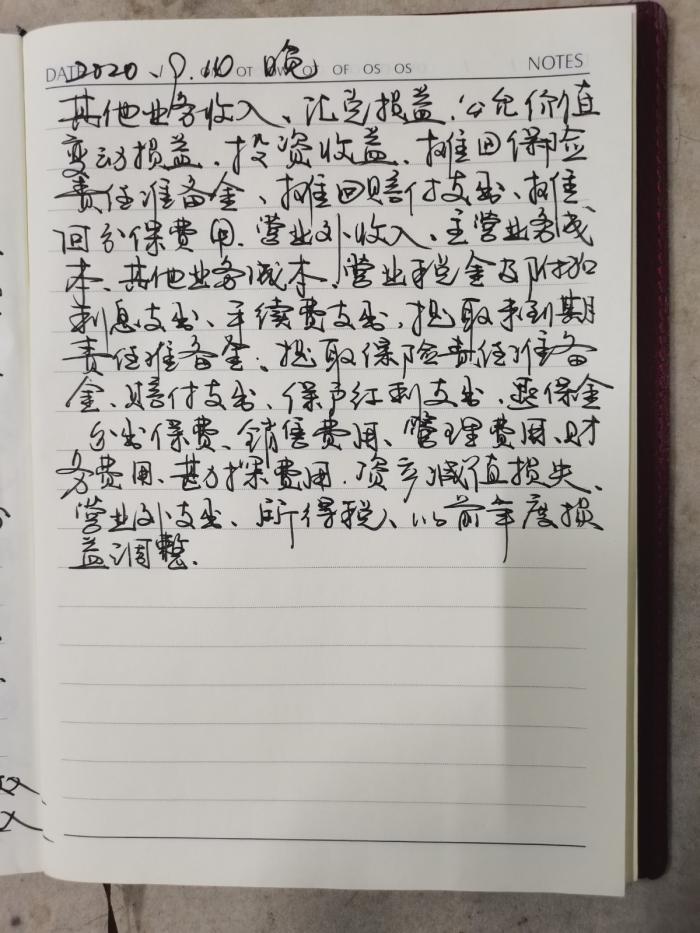 DATE 2020.9.10 晚 OF OS OS NOTES
其他业务收入、汇兑损益、公允价值
变动损益、投资收益、摊回保险
责任准备金、摊回赔付支出、摊
回分保费用、营业外收入、主营业务成
本、其他业务成本、营业税金及附加
利息支出、手续费支出、提取未到期
责任准备金、提取保险责任准备
金、赔付支出、保户红利支出、退保金
分出保费、销售费用、管理费用、财
务费用、勘探费用、资产减值损失、
营业外支出、所得税、以前年度损
益调整.